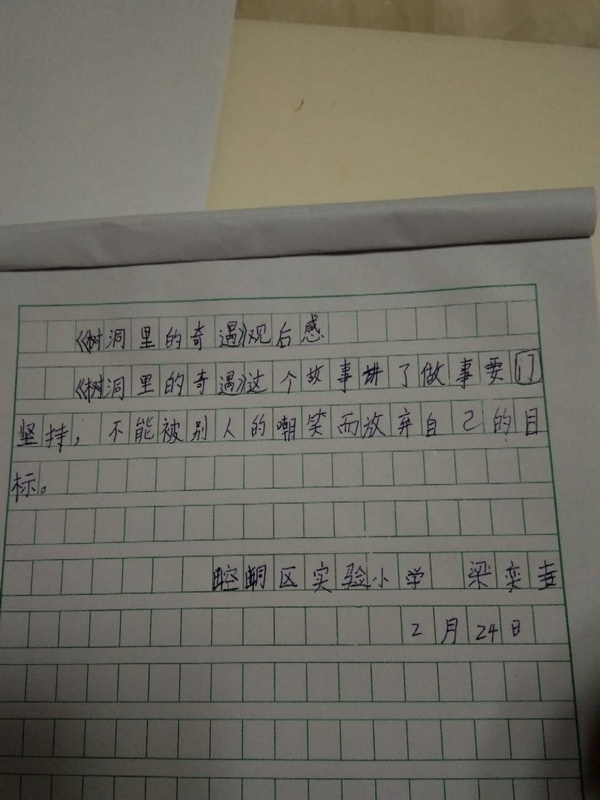 《树洞里的奇遇》观后感
《树洞里的奇遇》这个故事讲了做事要
坚持，不能被别人的嘲笑而放弃自己的目
标。
崆峒区实验小学 梁奕
2月24日